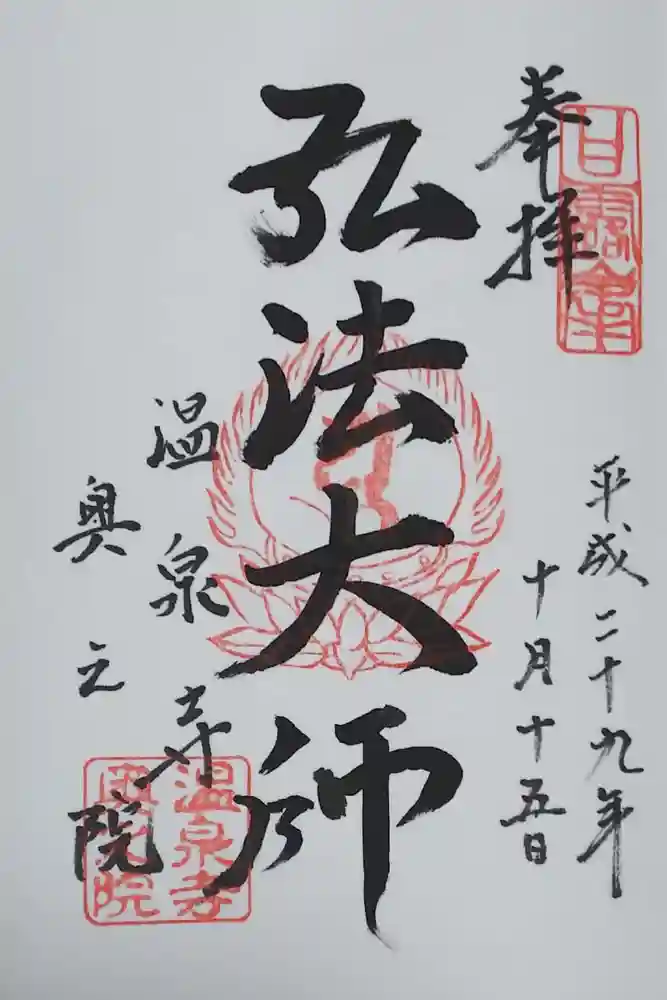 奉拝
平成二十九年
十月十五日
弘法大師
温泉寺
奥之院
甘露金手
温泉寺
奥之院